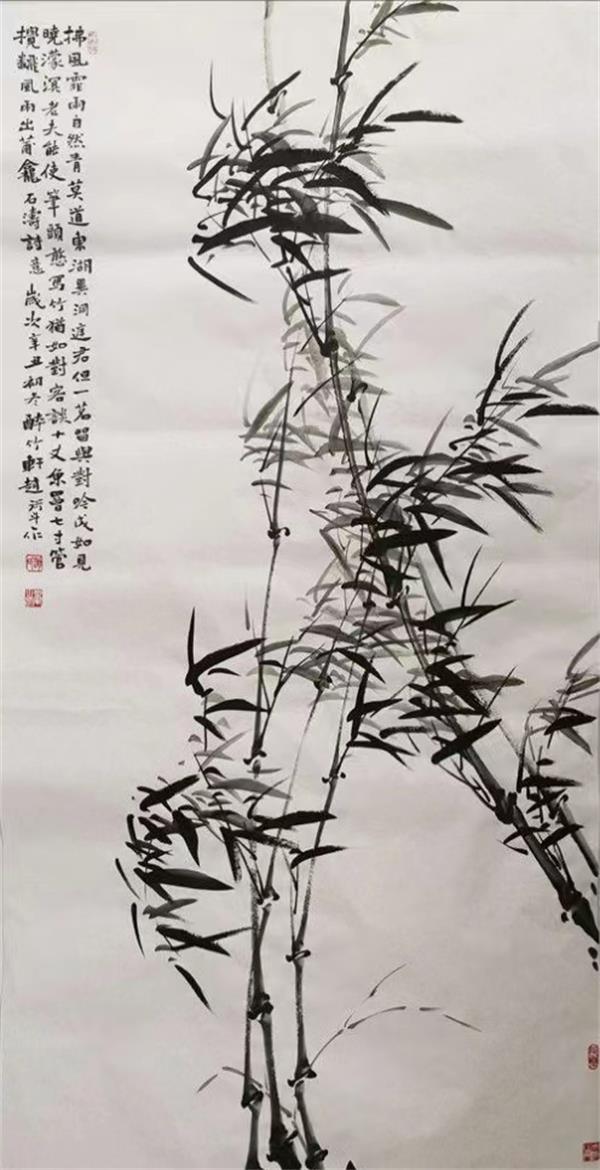 拂風霏雨自然青莫道東湖異洞庭君但一茗留與對吟成如見
曉濛溟老夫能使筆頭憨寫竹猶如對客談十丈魚罾七寸管
攪翻風雨出莆龕石濤詩意歲次辛丑初冬醉竹軒趙作